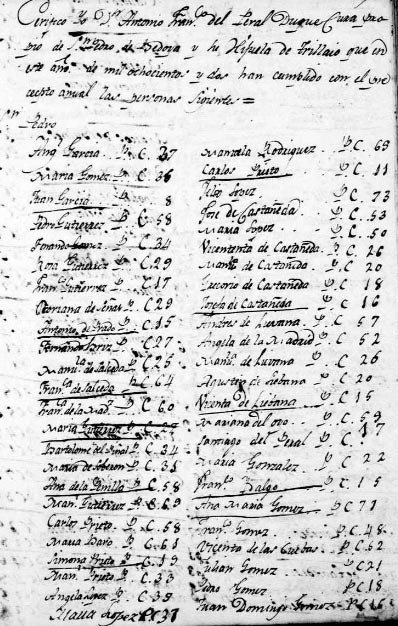 Certifico Yo Dn. Antonio Franco. del Peral Duque Cura pro
pio de Sn. Pedro de Bedoya y su Hijuela de Trillaio que en
este año de mil ochocientos y dos han cumplido con el pre
cepto anual las personas siguientes =
Sn Pedro
Ana Garcia P. C. 37
Maria Gomez P. C. 36
Juan Garcia 8
Pedro Gutierrez P. C. 58
Fernando Gomez P. C. 34
Rosa Gutierrez P. C. 29
Franco. Gutierrez P. C. 17
C. 29
Antonio de Prado P. C. 15
Fernando P. C. 27
Manl. de Salceda P. C. 25
Franco. de Salceda P. C. 64
Franca. de la Mad. P. C. 60
Maria Gutierrez P. C.
Bartolome del P. C. 34
Maria de P. C. 31
Ana de la P. C. 58
Man. Gutierrez P. C. 69
Carlos Prieto P. C. 58
Maria Haro P. C. 61
Simona Prieto P. C. 19
Juan Prieto P. C. 33
Angela Lopez P. C. 39
Maria Lopez P. C. 37
Manuela Rodriguez P. C. 69
Carlos Prieto P. C. 11
Lopez P. C. 73
Jose de Castañeda P. C. 53
Maria Lopez P. C. 50
Vicenta de Castañeda P. C. 26
Manl. de Castañeda P. C. 20
de Castañeda P. C. 18
de Castañeda P. C. 16
Andres de Luvana P. C. 57
Angela de la Madrid P. C. 52
Manl. de Luvana P. C. 26
Agustin de P. C. 20
Vicenta de P. C. 15
Mariano del oro P. C. 59
Santiago del Peral P. C. 17
Maria Gonzalez P. C. 22
Franco. P. C. 15
Ana Maria Gomez P. C. 71
Franco. Gomez P. C. 48
Vicenta de las Cuebas P. C. 52
Julian Gomez P. C. 21
Pedro Gomez P. C. 18
Juan Domingo Gomez P. C. 16